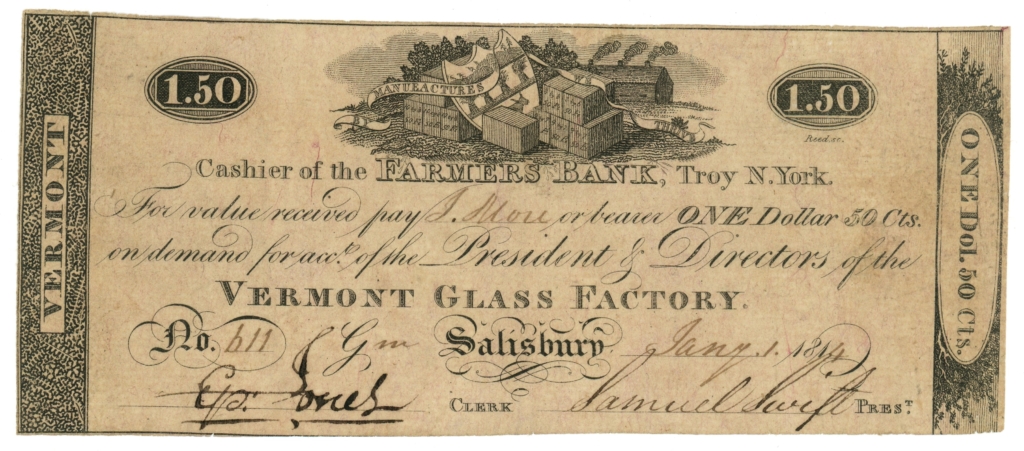 VERMONT
1.50
MANUFACTURES
1.50
Reed sc.
Cashier of the FARMERS BANK, Troy N. York.
For value received pay or bearer ONE Dollar 50 Cts.
on demand for acct. of the President & Directors of the
VERMONT GLASS FACTORY.
No. 611 Gm Salisbury Jany. 1. 1814
Ep. Jones CLERK Samuel Swift PREST.
ONE Dol. 50 Cts.